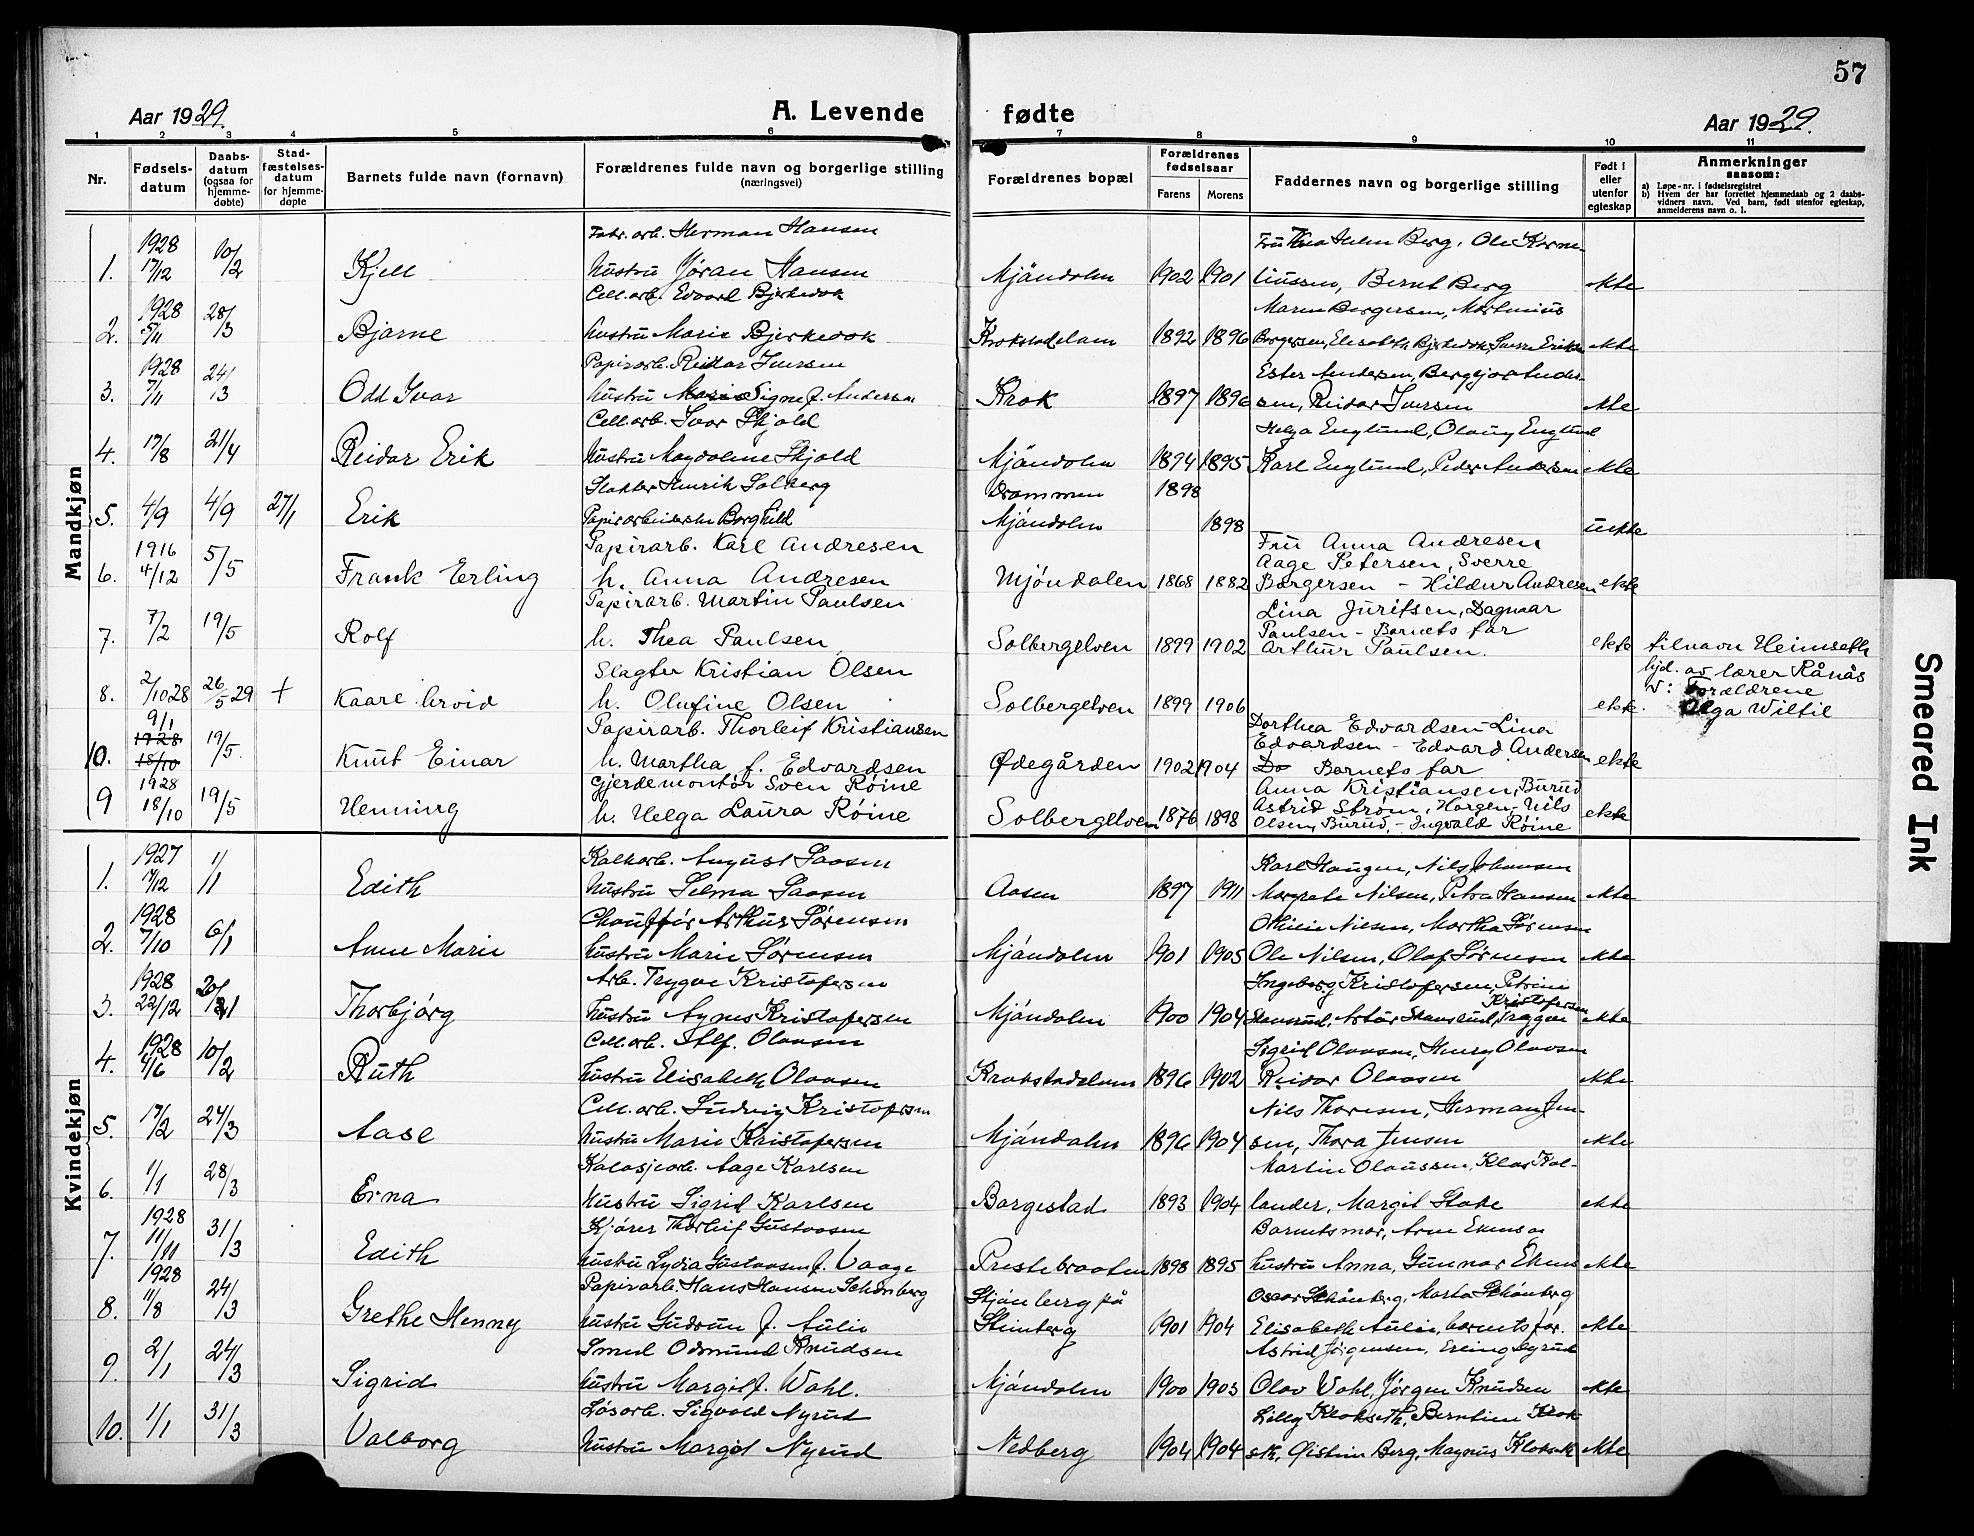 57
Aar 1929. A. Levende fødte Aar 1929.
1 2 3 4 5 6 7 8 9 10 11
Nr. Fødsels-datum Daabs-datum (ogsaa for hjemme-døbte) Stad-fæstelses-datum for hjemme-døpte Barnets fulde navn (fornavn) Forældrenes fulde navn og borgerlige stilling (næringsvei) Forældrenes bopæl Forældrenes fødselsaar Farens Morens Faddernes navn og borgerlige stilling Født i eller utenfor egteskap Anmerkninger saasom:
a) Løpe-nr. i fødselsregistret
b) Hvem der har forrettet hjemmedaab og 2 daabs-vidners navn. Ved barn, født utenfor egteskap, anmelderens navn o. l.
Mandkjøn
1928 Fabr.arb. Herman Hansen Fru Thea Helen Berg, Ole Korne-
1. 17/12 10/2 Kjell hustru Jøran Hansen Mjøndalen 1902 1901 liussen, Bernt Berg ekte
1928 Cell.arb. Edvard Bjerkedok Maren Borgersen, Martinius
2. 5/11 28/3 Bjarne hustru Marie Bjerkedok Krokstadelven 1892 1896 Borgersen, Elisabeth Bjerkedok, Sverre Eriksen ekte
1928 Papirarb. Reidar Iversen Ester Andersen, Bergljot Ander-
3. 7/11 24/3 Odd Ivar hustru Signe f. Andersen Krok 1897 1896 sen, Reidar Iversen ekte
Cell.arb. Ivar Skjold Helga Englund, Olaug Englund
4. 17/8 21/4 Reidar Erik hustru Magdalene Skjold Mjøndalen 1894 1895 Karl Englund, Peder Andersen ekte
Slakter Henrik Solberg Drammen 1898
5. 4/9 4/9 27/1 Erik Papirarbeiderske Borghild Mjøndalen 1898 uekte
1916 Papirarb. Karl Andresen Fru Anna Andresen
Aage Petersen, Sverre
6. 4/12 5/5 Frank Erling h. Anna Andresen Mjøndalen 1868 1882 Borgersen - Hildur Andresen ekte
Papirarb. Martin Paulsen Lina Juritsen, Dagmar
Paulsen - Barnets far
7. 7/2 19/5 Rolf h. Thea Paulsen Solbergelven 1899 1902 Arthur Paulsen. ekte tilnavn Heimseth
Slagter Kristian Olsen hjd. av lærer Rånås
8. 2/10 28 26/5 29 + Kaare Arvid h. Olufine Olsen Solbergelven 1899 1906 ekte. v: Forældrene
Olga Wiltil
9/1 Papirarb. Thorleif Kristiansen Dorthea Edvardsen - Lina
1928 Edvardsen - Edvard Andersen
10. 18/10 19/5. Knut Einar h. Martha f. Edvardsen Ødegården 1902 1904 Do Barnets far ekte
1928 Gjerdemontør Sven Røine Anna Kristiansen, Burud
Astrid Strøm, Horgen - Nils
9 18/10 19/5 Henning h. Helga Laura Røine Solbergelven 1876 1898 Olsen, Burud, - Ingvald Røine ekte
Kvindekjøn
1927 Kalkarb. August Paasen Karl Haugen, Nils Johansen
1. 17/12 1/1 Edith hustru Selma Paasen Aasen 1897 1911 Margrete Nilsen, Petra Hansen ekte
1928 Chauffør Arthur Sørensen Othilie Nilsen, Martha Sørensen
2. 7/10 6/1 Anne Marie hustru Marie Sørensen Mjøndalen 1901 1905 Ole Nilsen, Olaf Sørensen ekte
1928 Arb. Trygve Kristofersen Ingeborg Kristofersen, Petrine
Kristofersen
3. 22/12 20/1 Thorbjørg hustru Agnes Kristofersen Mjøndalen 1900 1904 Skausrud, Astor Skausrud, Trygve ekte
1928 Cell.arb. Alf. Olavsen Sigrid Olavsen, Henry Olavsen
4. 4/6 10/2 Ruth hustru Elisabeth Olavsen Krokstadelven 1896 1902 Reidar Olavsen ekte
Cell.arb. Ludvig Kristofersen Nils Thoresen, Herman Jen-
5. 17/2 24/3 Aase hustru Marie Kristofersen Mjøndalen 1896 1904 sen, Thora Jensen ekte
Kalasjearb. Aage Karlsen Martin Olaussen, Klar Kol-
6. 1/1 28/3 Erna hustru Sigrid Karlsen Borgestad 1893 1904 lander, Margit Stake ekte
1928 Kjører Thorleif Gustavsen Barnets mor, Arne Ekenes og
7. 11/11 31/3 Edith hustru Lydia Gustavsen f. Vaage Prestebraaten 1898 1895 hustru Anna, Gunnar Ekenes ekte
1928 Papirarb. Hans Hansen Schønberg Stjønberg på Oscar Schønberg, Marta Schønberg
8. 11/8 24/3 Grethe Henny hustru Gudrun f. Aulie Steinberg 1901 1904 Elisabeth Aulie, barnets far. ekte
Smed Odmund Knudsen Astrid Jørgensen, Erling Nyrud
9. 2/1 24/3 Sigrid hustru Margit f. Wahl. Mjøndalen 1900 1903 Olav Wahl, Jørgen Knudsen ekte
Løsarb. Sigvald Nyrud Lilly Klokseth, Berntine Klok
10. 1/1 31/3 Valborg hustru Margit Nyrud Nedberg 1904 1904 seth, Øistein Berg, Magnus Klokseth ekte
Smeared Ink